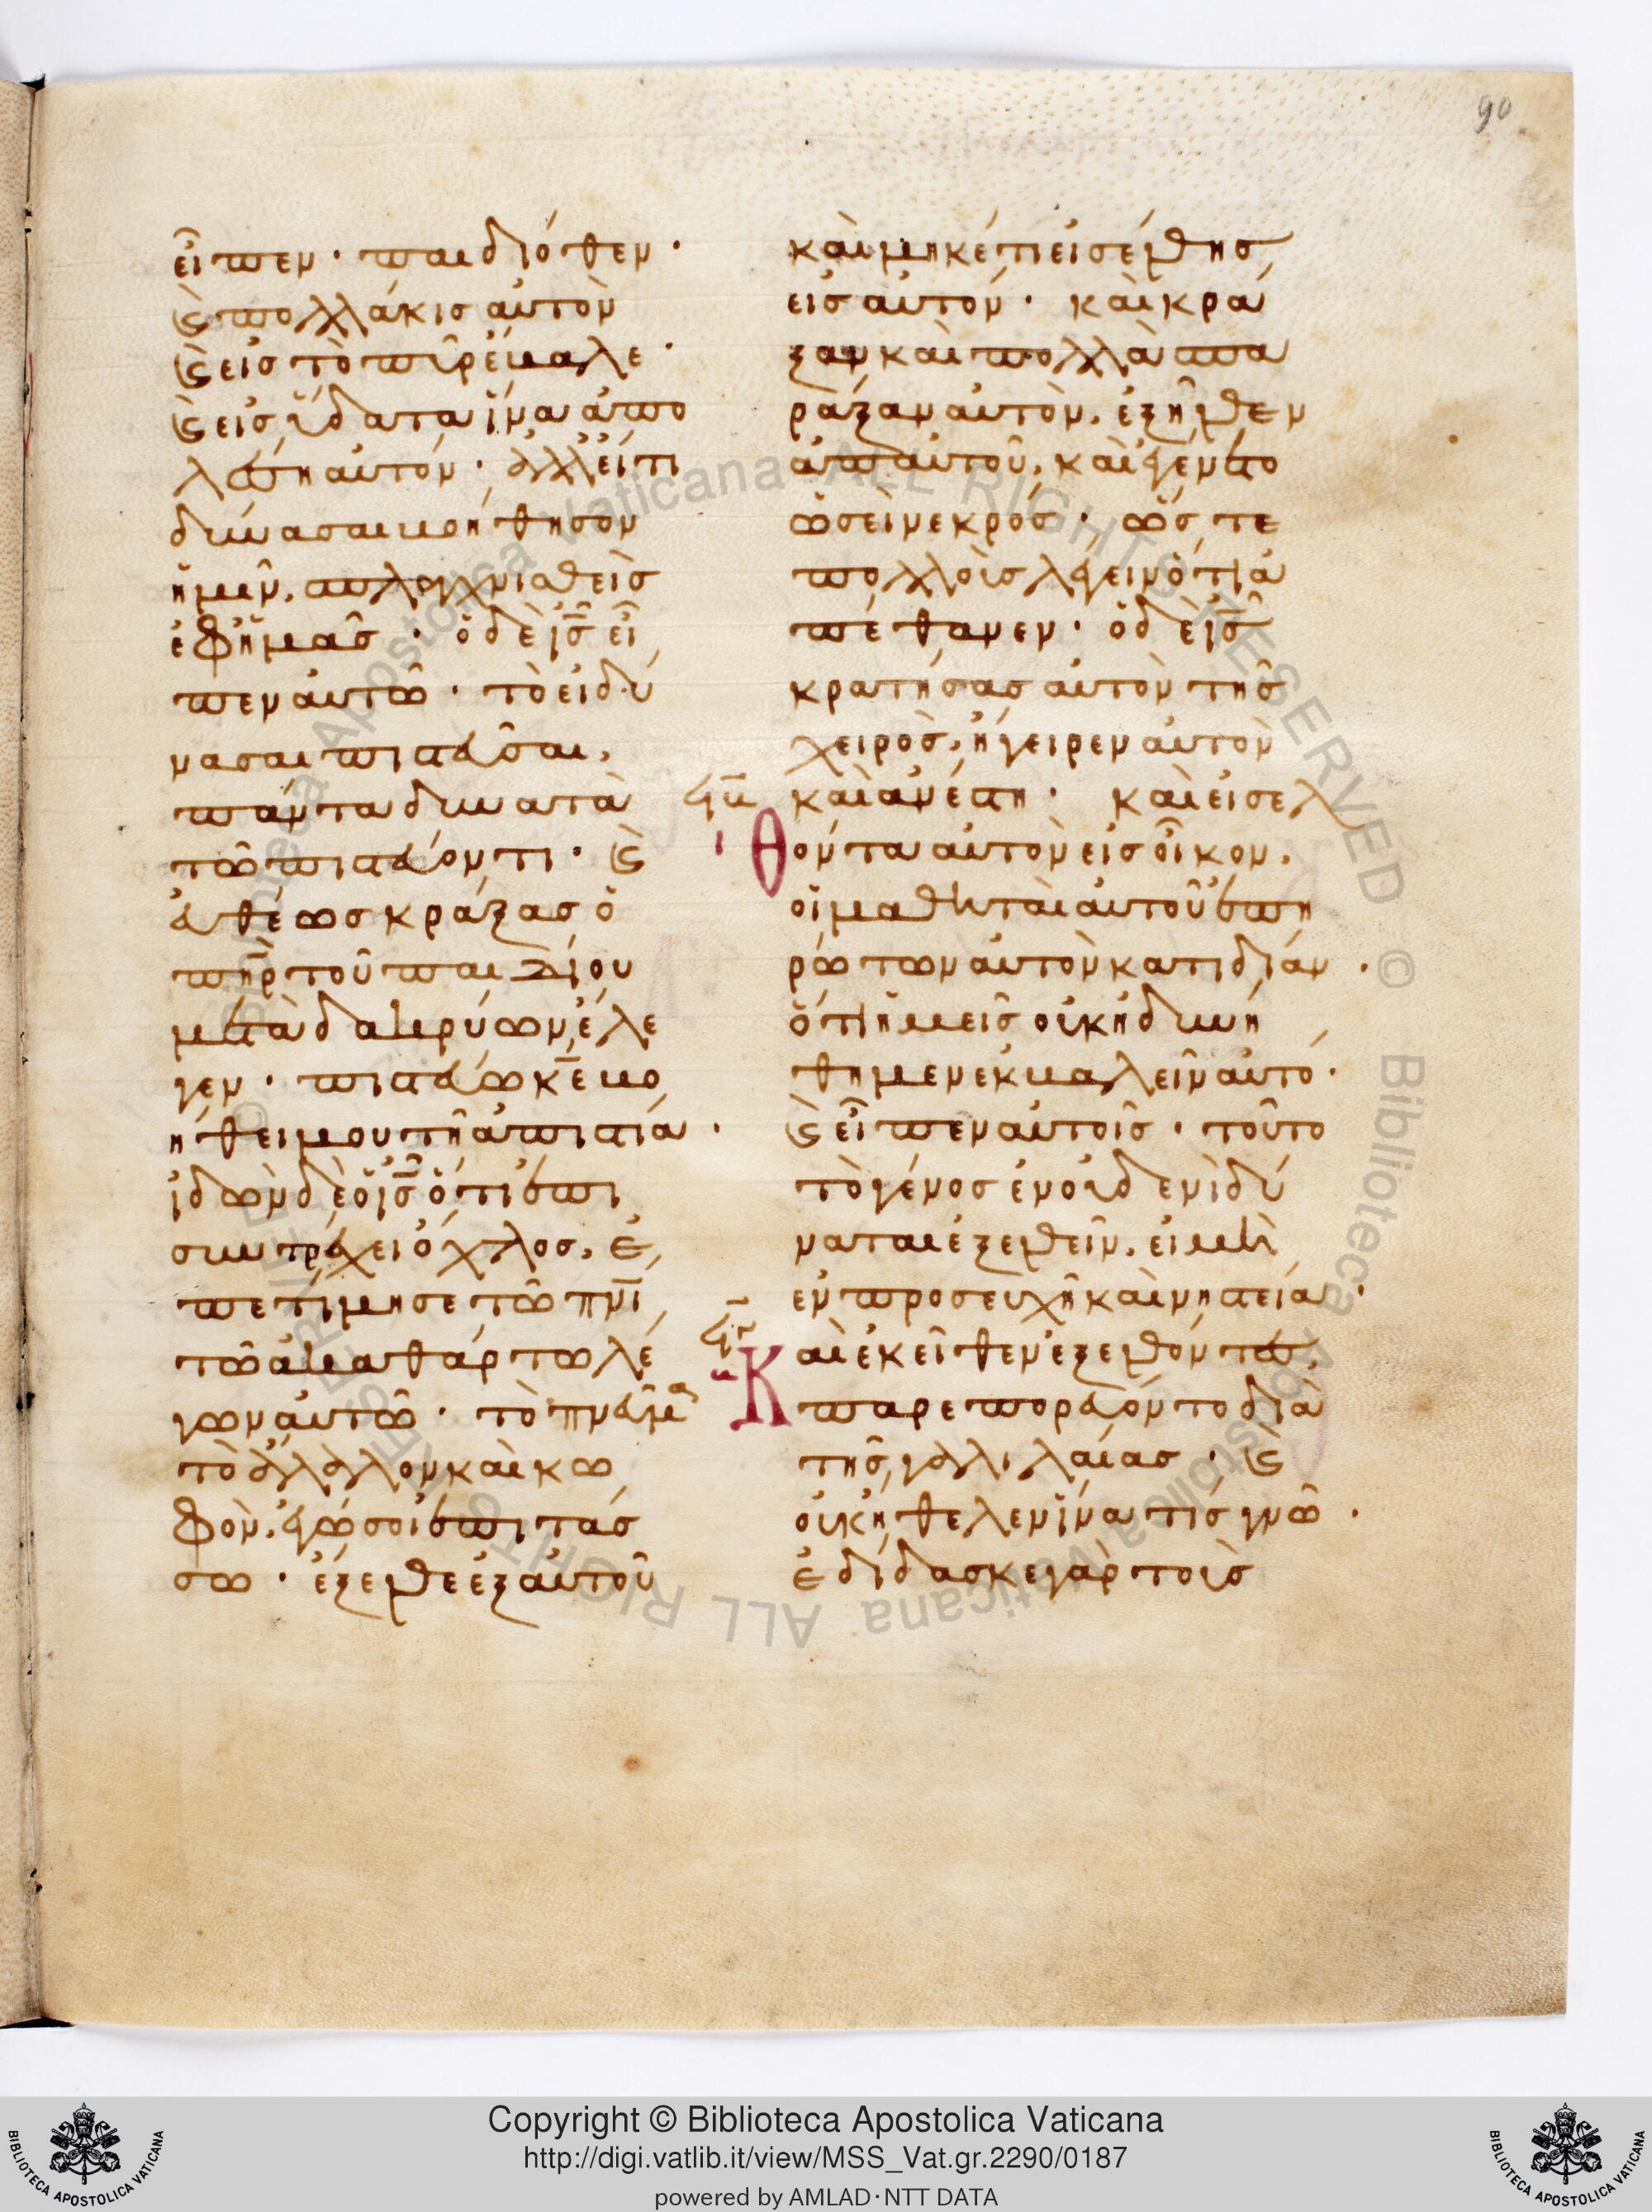 90
εἶπεν · παιδιόθεν ·
ϗ πολλάκισ αὐτὸν
ϗ εἰσ τὸ πῦρ ἔβαλε ·
ϗ εἰσ ὕδατα ἵνα ἀπο
λέσῃ αὐτόν · ἀλλ' εἴ τι
δύνασαι βοήθησον
ἡμῖν, σπλαγχνισθεὶσ
ἐφ' ἡμᾶσ · ὁ δὲ ις̅ εἶ
πεν αὐτῶ · τὸ εἰ δύ
νασαι πιστεῦσαι,
πάντα δυνατὰ
τῶ πιστεύοντι · ϗ
εὐθέωσ κράξασ ὁ
πη̅ρ τοῦ παιδίου
μετὰ δακρύων ἔλε
γεν · πιστεύω κε̅ βο
ήθει μου τῆ ἀπιστία ·
ἰδὼν δὲ ὁ ις̅ ὅτι ἐπι
συντρέχει ὄχλοσ, ἐ
πετίμησε τῶ πνι̅
τῶ ἀκαθάρτω λέ
γων αὐτῶ · τὸ πνεῦμα
τὸ ἄλαλον καὶ κω
φὸν, ἐγώ σοι ἐπιτάσ
σω · ἔξελθε ἐξ αὐτοῦ
καὶ μηκέτι εἰσέλθησ
εἰσ αὐτόν · καὶ κρά
ξαν καὶ πολλὰ σπα
ράξαν αὐτὸν, ἐξῆλθεν
ἀπ' αὐτοῦ, καὶ ἐγένετο
ὡσεὶ νεκρόσ · ὥστε
πολλοὺσ λέγειν ὅτι ἀ
πέθανεν · ὁ δὲ ις̅
κρατήσασ αὐτὸν τῆσ
χειρὸσ, ἤγειρεν αὐτὸν
καὶ ἀνέστη · καὶ εἰσελ
θόντα αὐτὸν εἰσ οἶκον,
οἱ μαθηταὶ αὐτοῦ ἐπη
ρώτων αὐτὸν κατιδίαν ·
ὅτι ἡμεῖσ οὐκ ἠδυνή
θημεν ἐκβαλεῖν αὐτό ·
ϗ εἶπεν αὐτοῖσ · τοῦτο
τὸ γένοσ ἐν οὐδενὶ δύ
ναται ἐξελθεῖν, εἰ μὴ
ἐν προσευχῆ καὶ νηστεία ·
Καὶ ἐκεῖθεν ἐξελθόντεσ,
παρεπορεύοντο διὰ
τῆσ γαλιλαίασ · ϗ
οὐκ ἤθελεν ἵνα τισ γνῶ ·
ἐδίδασκε γὰρ τοὺσ
Copyright © Biblioteca Apostolica Vaticana
http://digi.vatlib.it/view/MSS_Vat.gr.2290/0187
powered by AMLAD·NTT DATA
BIBLIOTECA APOSTOLICA VATICANA
BIBLIOTECA APOSTOLICA VATICANA